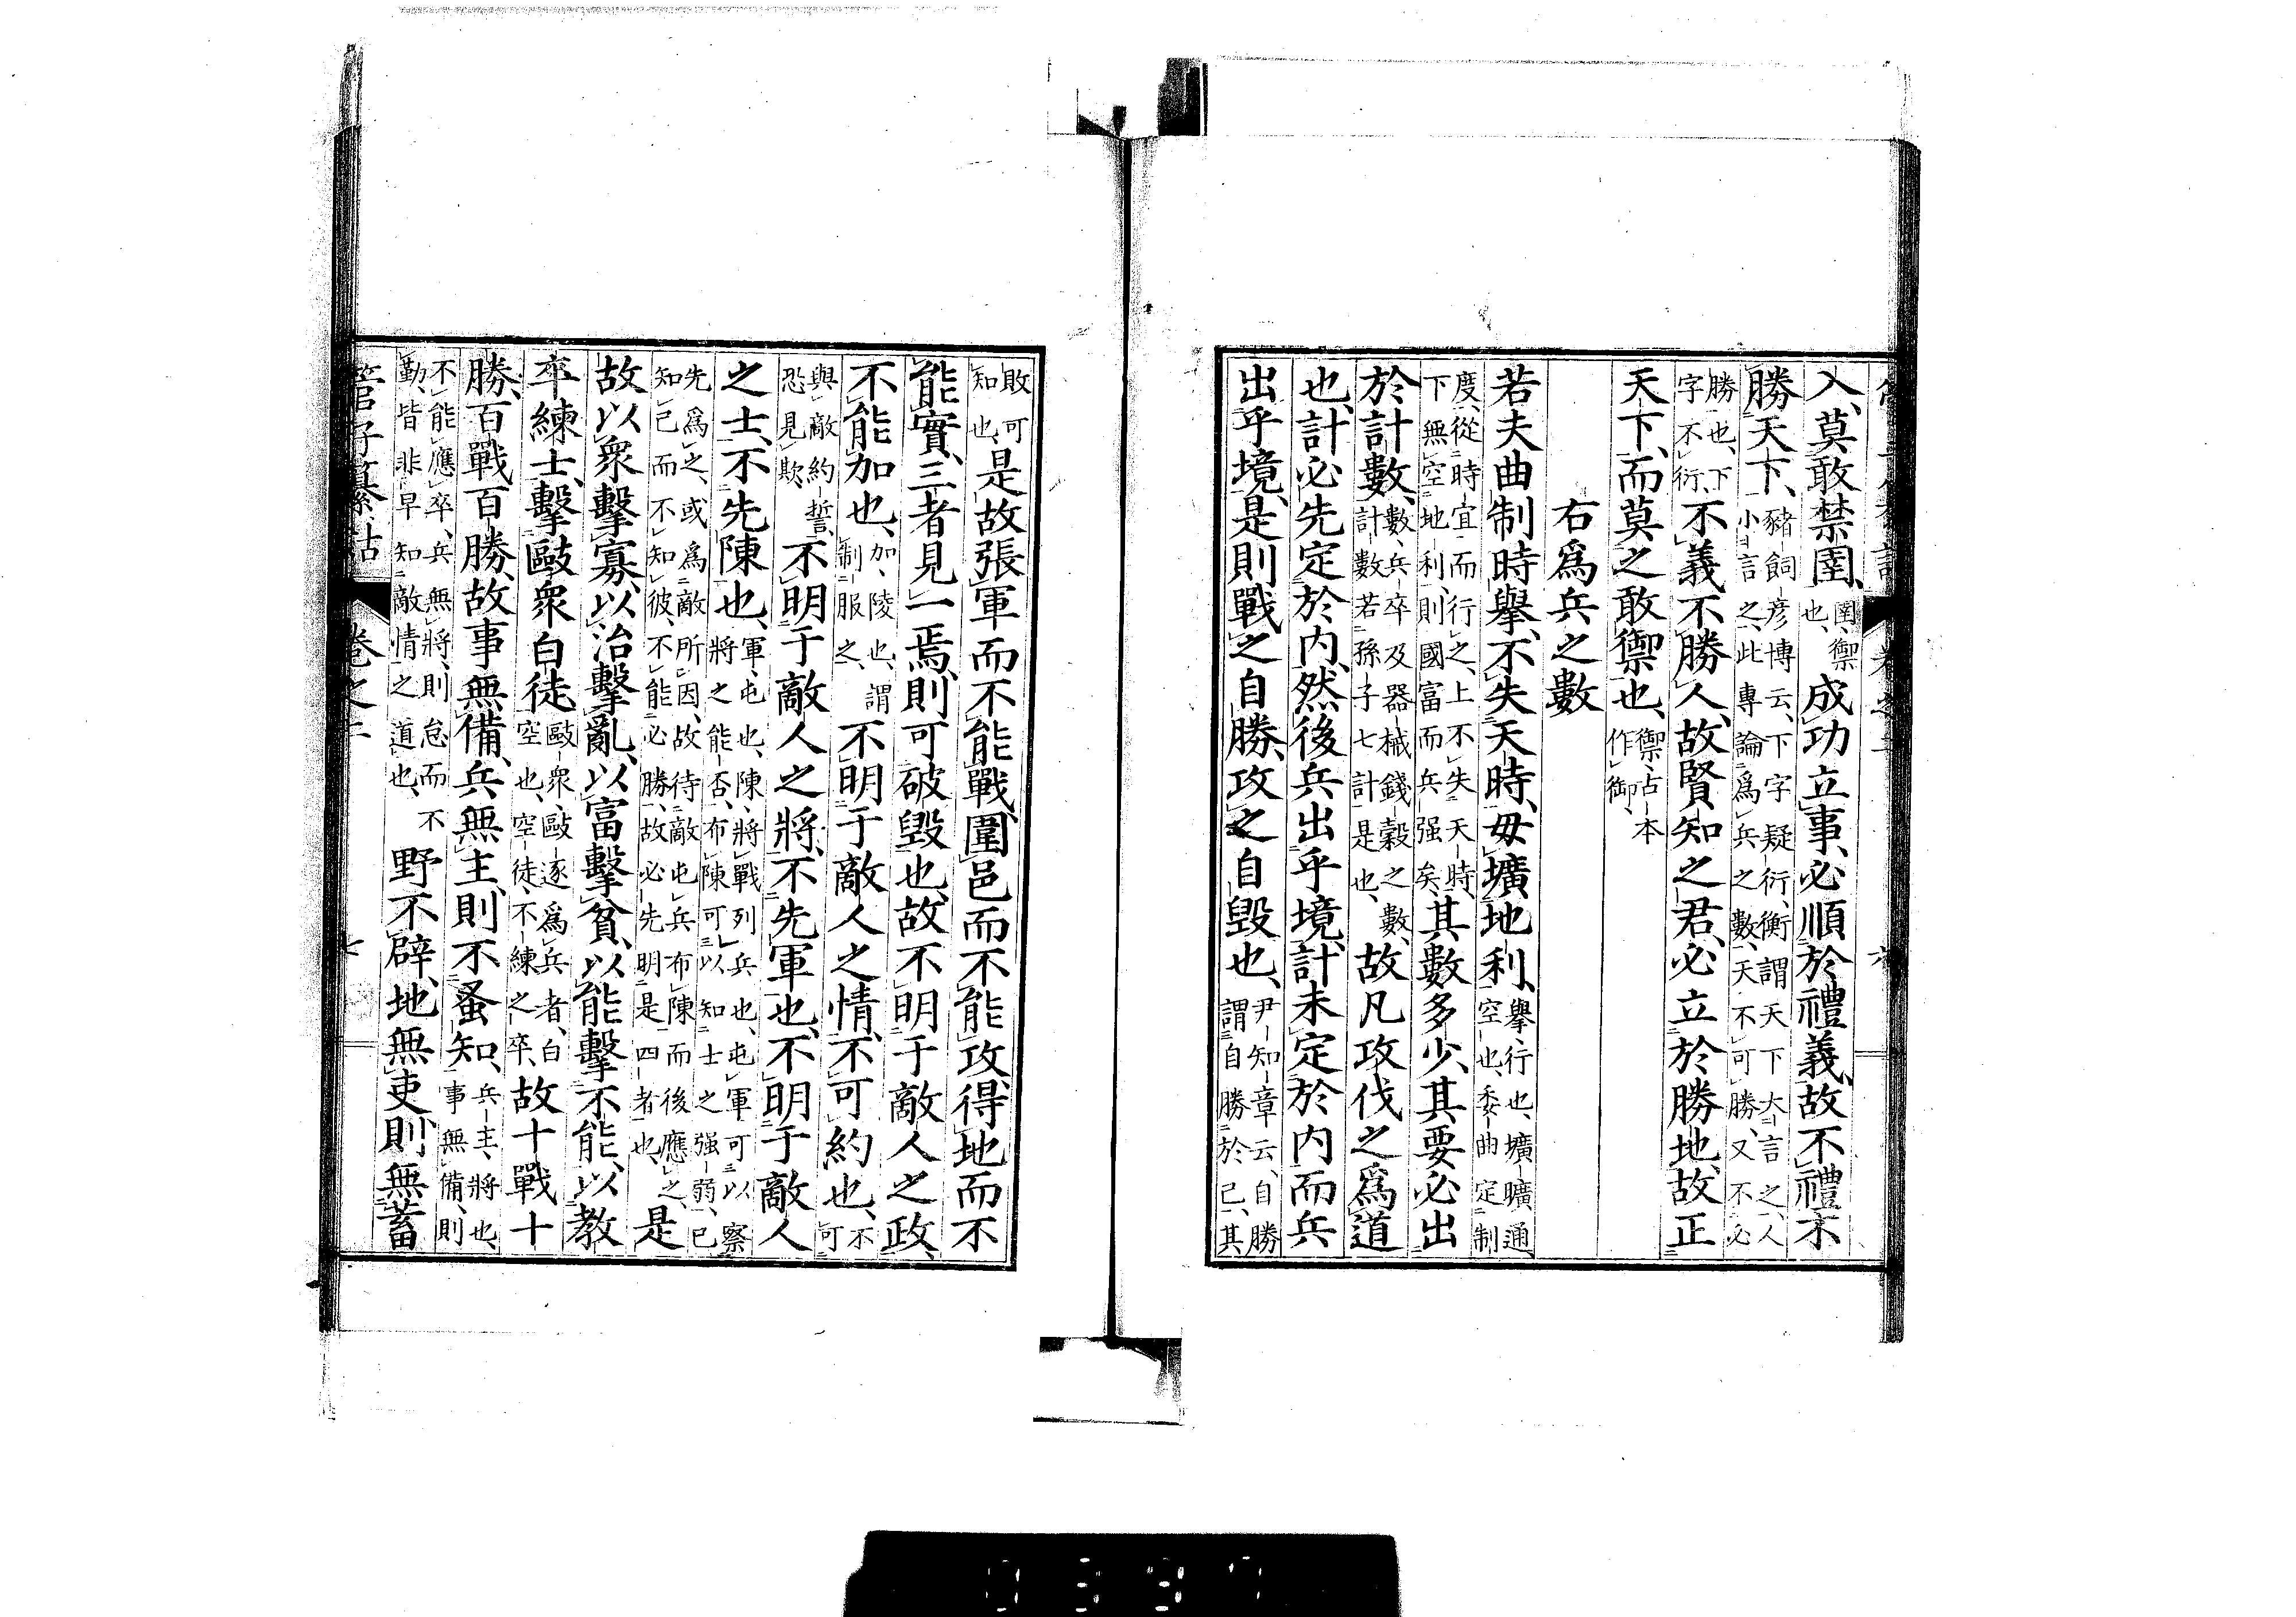 入、莫敢禁圉、圉、禦也、成功立事、必順於禮義、故不禮不
勝天下、豬飼彦博云、下字疑衍、衡謂天下大言之、人小言之、此專論爲兵之數、天不可勝、又不必
勝也、下字不衍、不義不勝人、故賢知之君、必立於勝地、故正
天下、而莫之敢禦也、禦、古本作御、
右爲兵之數
若夫曲制時擧、不失天時、毋壙地利、擧、行也、壙曠通、空也、委曲定制
度、從時宜而行之、上不失天時、下無空地利、則國富而兵强矣、其數多少、其要必出
於計數、數、兵卒及器械錢穀之數、計數若孫子七計是也、故凡攻伐之爲道
也、計必先定於内、然後兵出乎境、計未定於内而兵
出乎境、是則戰之自勝、攻之自毀也、尹知章云、自勝謂自勝於己、其
敗可知也、是故張軍而不能戰、圍邑而不能攻、得地而不
能實、三者見一焉、則可破毀也、故不明于敵人之政、
不能加也、加、陵也、謂制服之、不明于敵人之情、不可約也、不可
與敵約誓、恐見欺、不明于敵人之將、不先軍也、不明于敵人
之士、不先陳也、軍、屯也、陳、將戰列兵也、屯軍可以察將之能否、布陳可以知士之强弱、已
先爲之、或爲敵所因、故待敵屯兵布陳而後應之、知己而不知彼、不能必勝、故必先明是四者也、是
故以衆擊寡、以治擊亂、以富擊貧、以能擊不能、以教
卒練士、擊敺衆白徒、敺衆、敺逐爲兵者、白空也、空徒、不練之卒、故十戰十
勝、百戰百勝、故事無備、兵無主、則不蚤知、兵主、將也、事無備、則
不能應卒、兵無將、則怠而不勤、皆非早知敵情之道也、野不辟、地無吏、則無蓄
管子纂詁 卷之二 七